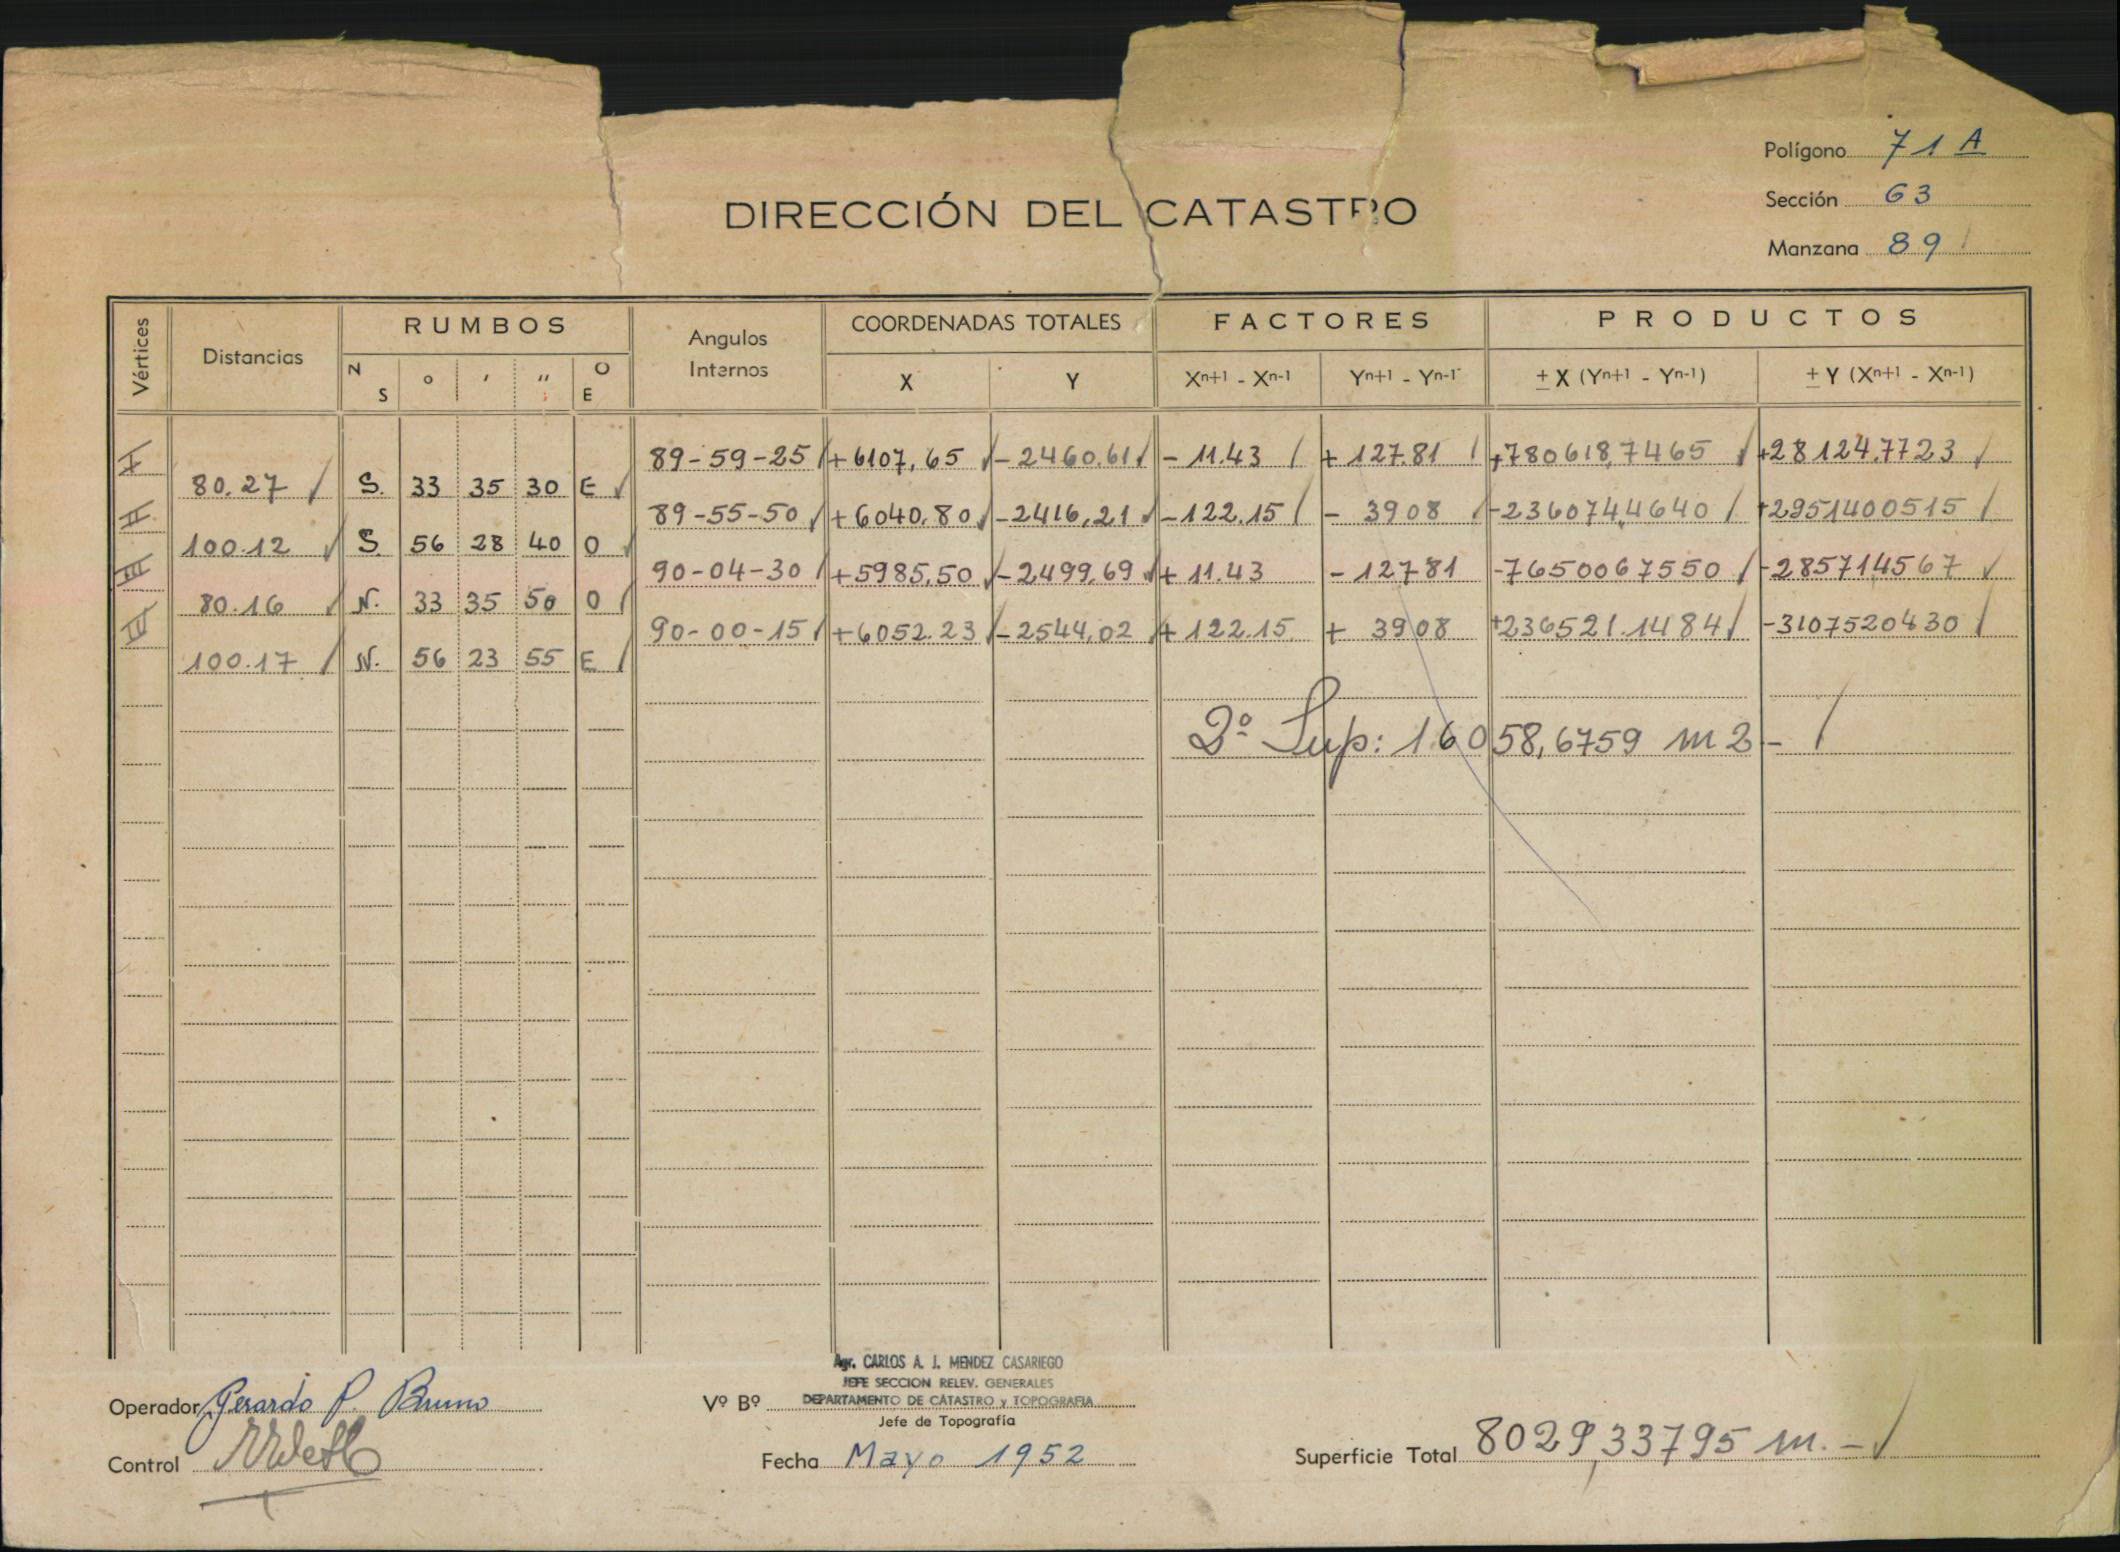 Polígono 71 A
Sección 63
DIRECCIÓN DEL CATASTRO
Manzana 89
Vértices Distancias RUMBOS Angulos Internos COORDENADAS TOTALES FACTORES PRODUCTOS
N S o ′ ″ O E X Y Xn+1 - Xn-1 Yn+1 - Yn-1 ± X (Yn+1 - Yn-1) ± Y (Xn+1 - Xn-1)
I 89-59-25 +6107,65 -2460,61 - 11.43 + 127.81 +780618,7465 +28124,7723
80.27 S. 33 35 30 E
II 89-55-50 +6040,80 -2416,21 -122.15 - 3908 -236074,4640 +2951400515
100.12 S 56 28 40 O
III 90-04-30 +5985,50 -2499,69 + 11.43 - 12781 -7650067550 -285714567
80.16 N. 33 35 50 O
IV 90-00-15 +6052.23 -2544,02 + 122.15 + 3908 +236521.1484 -3107520430
100.17 N. 56 23 55 E
2º Sup: 16058,6759 m2-
Agr. CARLOS A. J. MENDEZ CASARIEGO
JEFE SECCION RELEV. GENERALES
Operador Gerardo P. Bruno Vº Bº DEPARTAMENTO DE CATASTRO y TOPOGRAFIA
Jefe de Topografía
Control Fecha Mayo 1952 Superficie Total 8029,33795 m.-